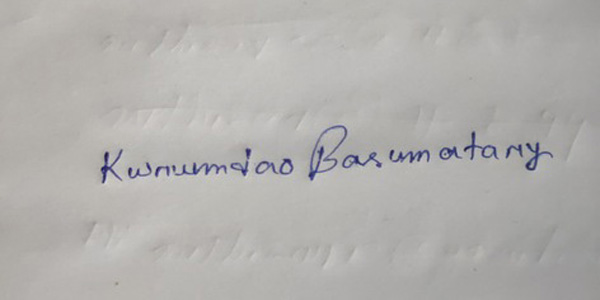 Kwrwmdao Basumatary